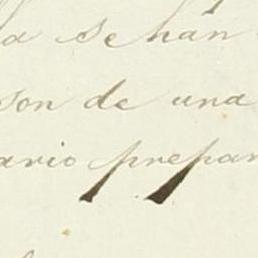 a se han
son de una
ario prepar